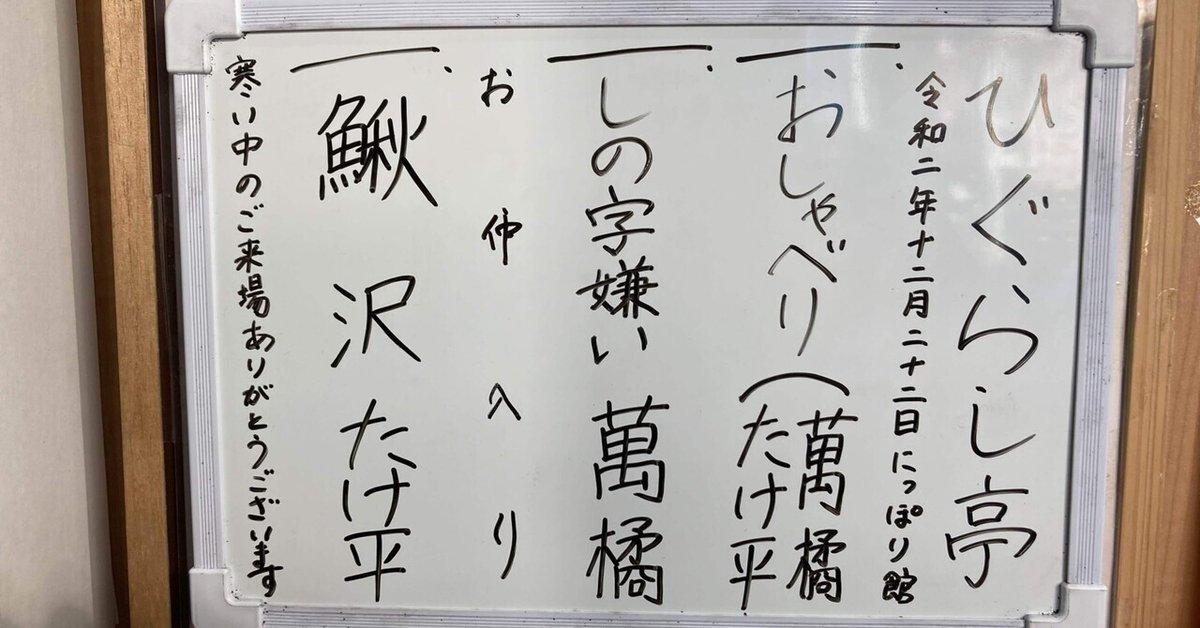 ひぐらし亭
令和二年十二月二十二日にっぽり館
一.おしゃべり(萬橘 たけ平
一.しの字嫌い 萬橘
お仲入り
一.鰍沢 たけ平
寒い中のご来場ありがとうございます